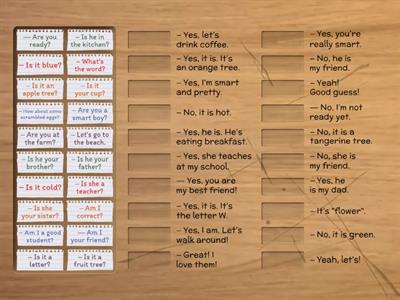 — Are you
ready?
– Is he in
the kitchen?
– Is it blue?
– What's
the word?
– Is it an
apple tree?
– Is it
your cup?
– How about some
scrambled eggs?
– Are you a
smart boy?
– Are you at
the farm?
– Let's go to
the beach.
– Is he your
brother?
– Is he your
father?
– Is it cold?
– Is she a
teacher?
– Is she
your sister?
– Am I
correct?
– Am I a good
student?
— Am I
your friend?
– Is it a
letter?
– Is it a
fruit tree?
– Yes, let's
drink coffee.
– Yes, it is. It's
an orange tree.
– Yes, I'm smart
and pretty.
– No, it is hot.
– Yes, he is. He's
eating breakfast.
– Yes, she teaches
at my school.
— Yes, you are
my best friend!
– Yes, it is. It's
the letter W.
– Yes, I am. Let's
walk around!
– Great! I
love them!
– Yes, you're
really smart.
– No, he is
my friend.
– Yeah!
Good guess!
— No, I'm not
ready yet.
– No, it is a
tangerine tree.
– No, she is
my friend.
– Yes, he
is my dad.
– It's "flower".
– No, it is green.
– Yeah, let's!